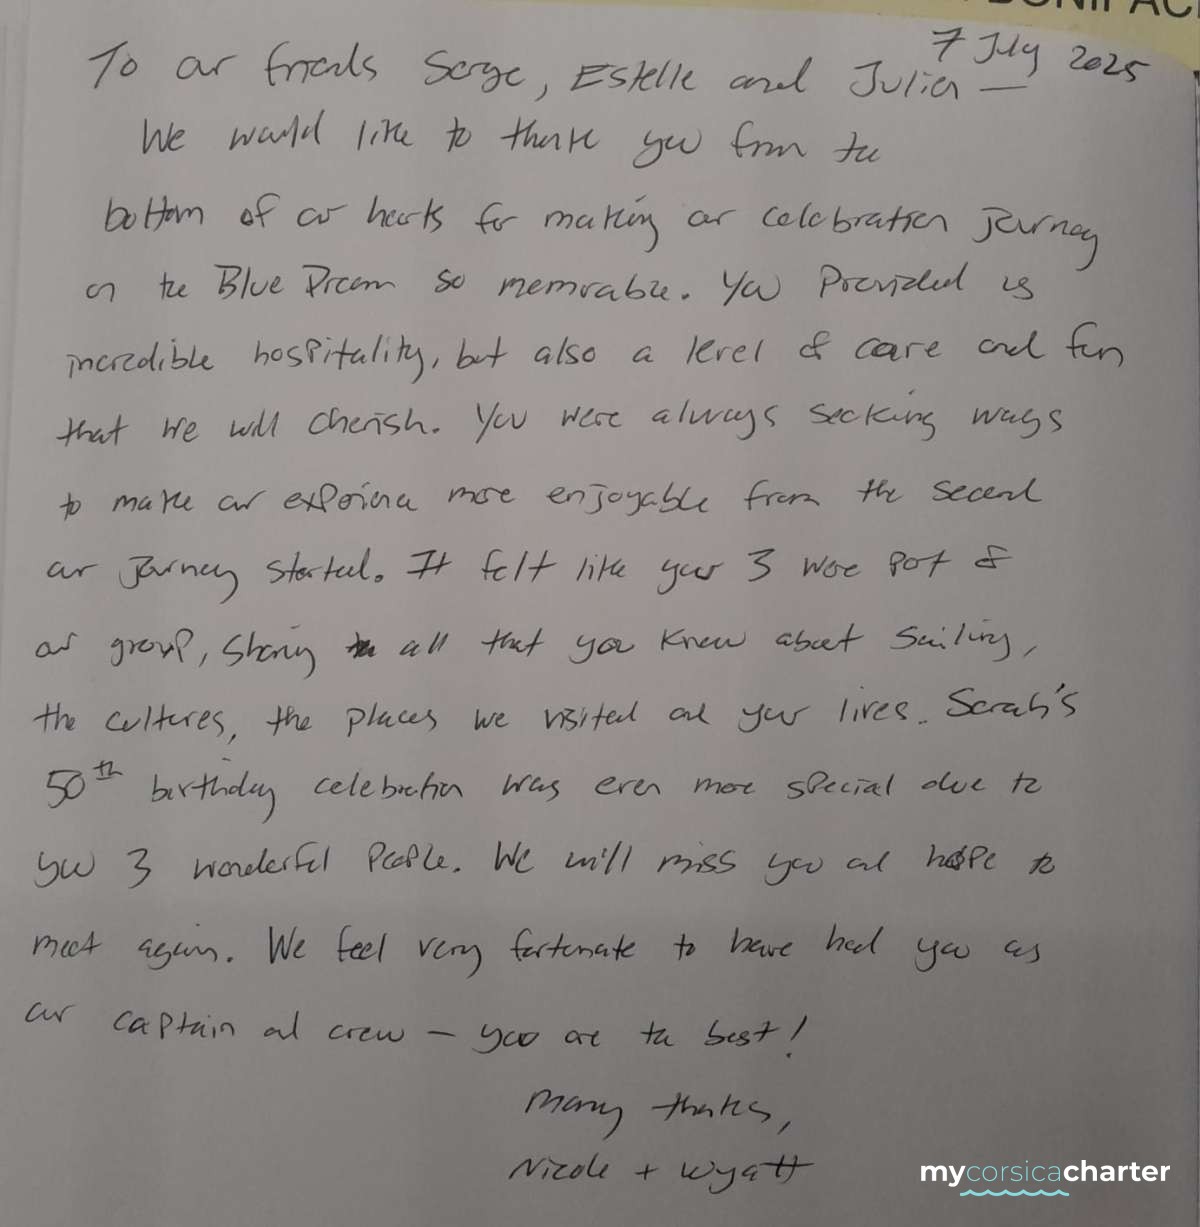 BONIFAC
7 July 2025
To our friends Serge, Estelle and Julien —
We would like to thank you from the
bottom of our hearts for making our celebration journey
on the Blue Dream so memorable. You provided us
incredible hospitality, but also a level of care and fun
that we will cherish. You were always seeking ways
to make our experience more enjoyable from the second
our journey started. It felt like your 3 were part of
our group, sharing all that you knew about sailing,
the cultures, the places we visited and your lives. Sarah's
50th birthday celebration was even more special due to
you 3 wonderful people. We will miss you and hope to
meet again. We feel very fortunate to have had you as
our captain and crew — you are the best!
Many thanks,
Nicole + Wyatt
mycorsicacharter